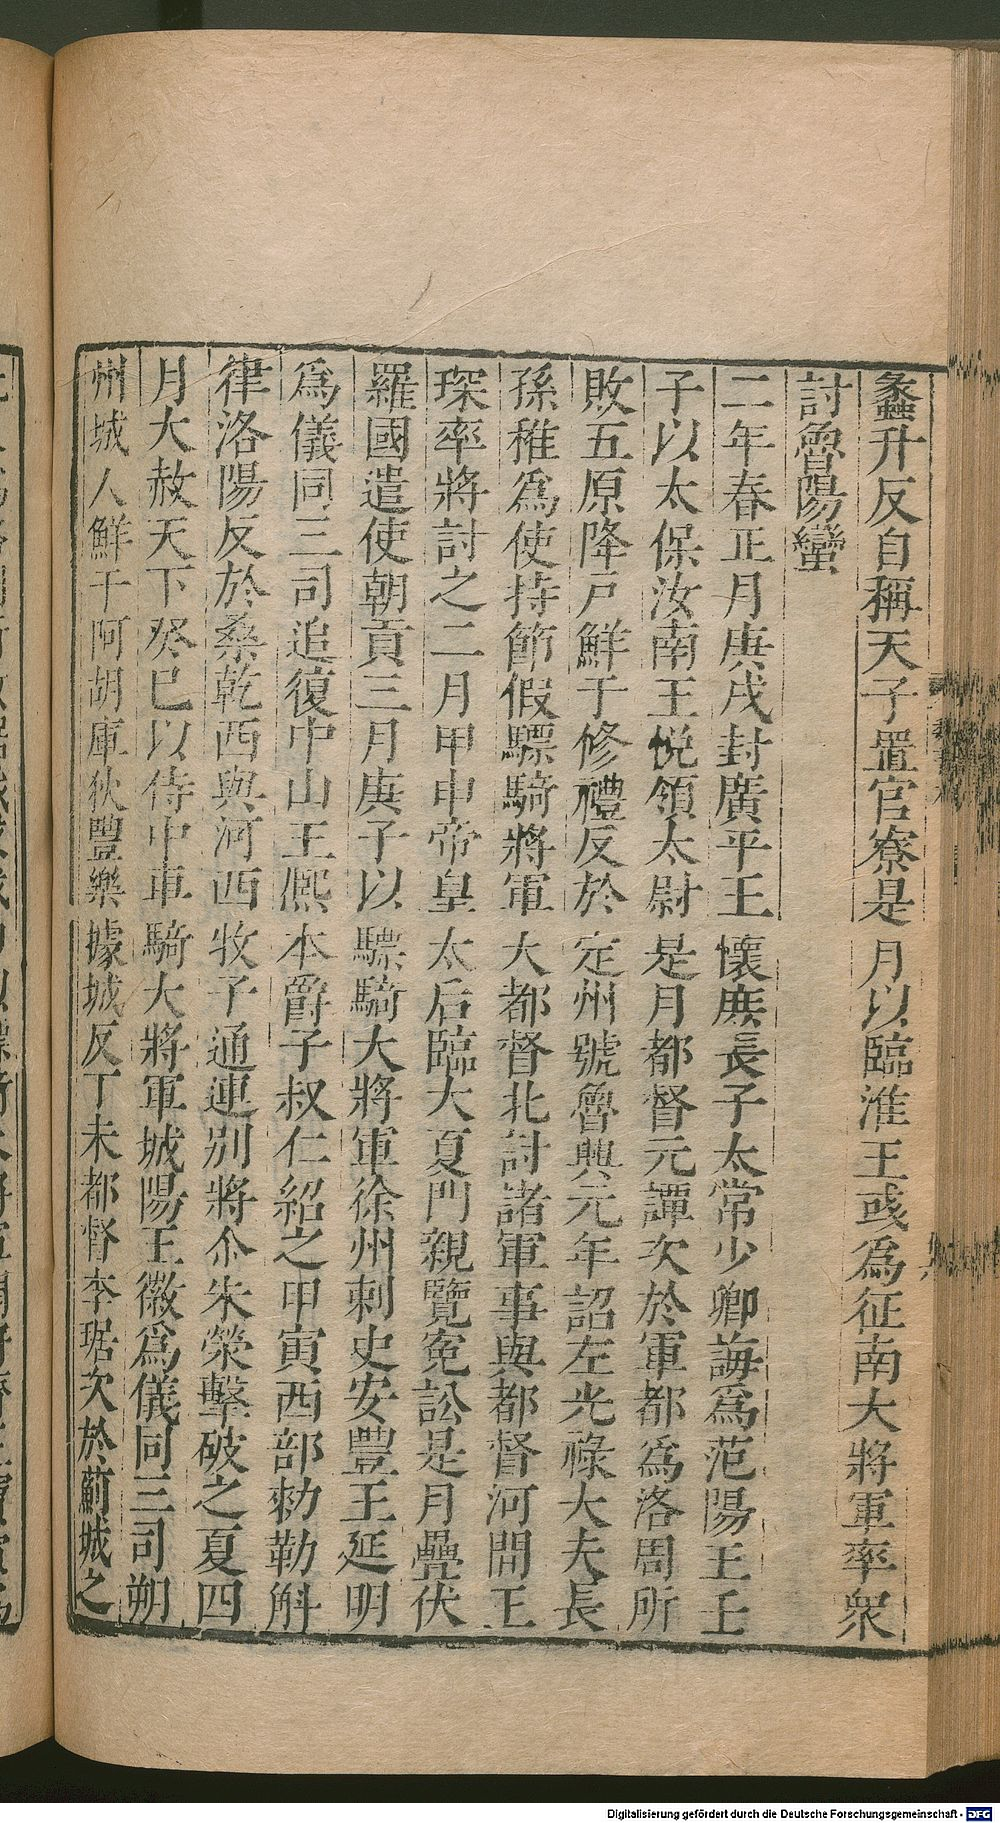 蠡升反自稱天子置官寮是月以臨淮王彧為征南大將軍率衆
討魯陽蠻
二年春正月庚戌封廣平王懷庶長子太常少卿誨爲范陽王壬
子以太保汝南王悅領太尉是月都督元譚次於軍都爲洛周所
敗五原降戶鮮于修禮反於定州號魯興元年詔左光祿大夫長
孫稚爲使持節假驃騎將軍大都督北討諸軍事與都督河間王
琛率將討之二月甲申帝皇太后臨大夏門親覽寃訟是月疊伏
羅國遣使朝貢三月庚子以驃騎大將軍徐州刺史安豐王延明
爲儀同三司追復中山王熈本爵子叔仁紹之甲寅西部勑勒斛
律洛陽反於桑乾西與河西牧子通連別將尒朱榮擊破之夏四
月大赦天下癸巳以侍中車騎大將軍城陽王徽爲儀同三司朔
州城人鮮于阿胡庫狄豐樂據城反丁未都督李琚次於薊城之
Digitalisierung gefördert durch die Deutsche Forschungsgemeinschaft - DFG